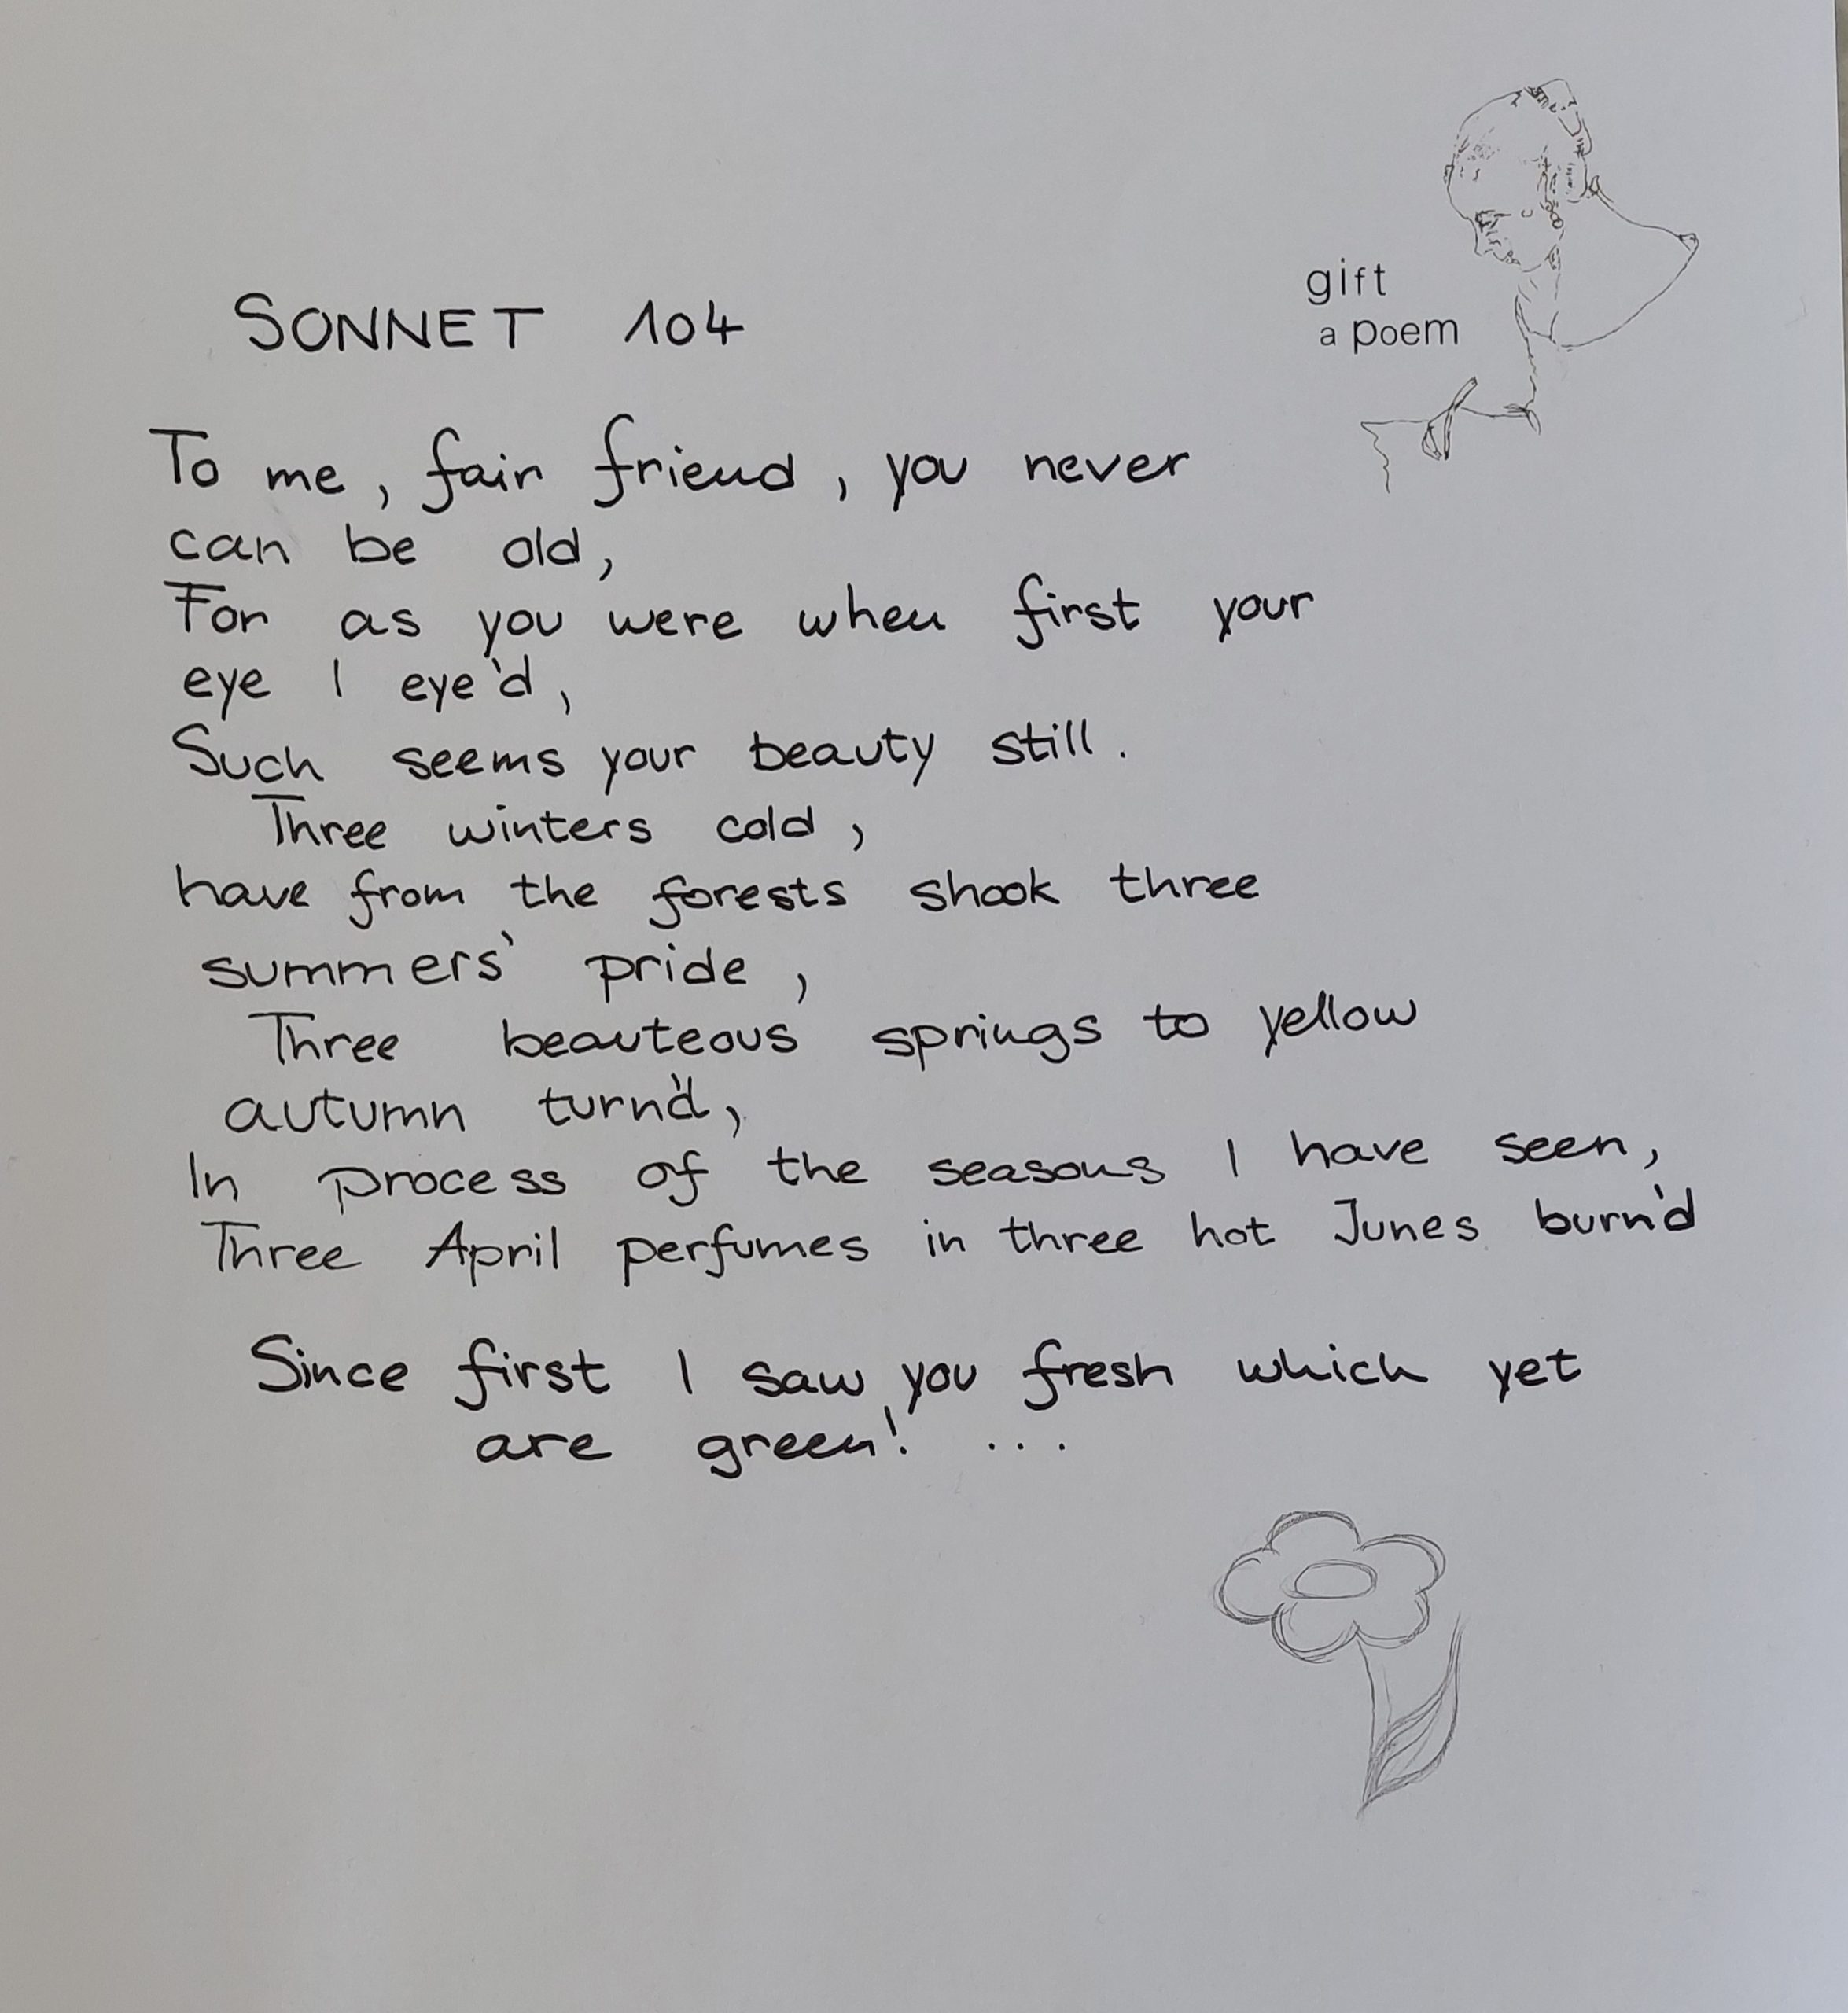 gift
a poem
SONNET 104
To me, fair friend, you never
can be old,
For as you were when first your
eye I eye'd,
Such seems your beauty still.
Three winters cold,
have from the forests shook three
summers' pride,
Three beauteous springs to yellow
autumn turn'd,
In process of the seasons I have seen,
Three April perfumes in three hot Junes burn'd
Since first I saw you fresh which yet
are green! ...